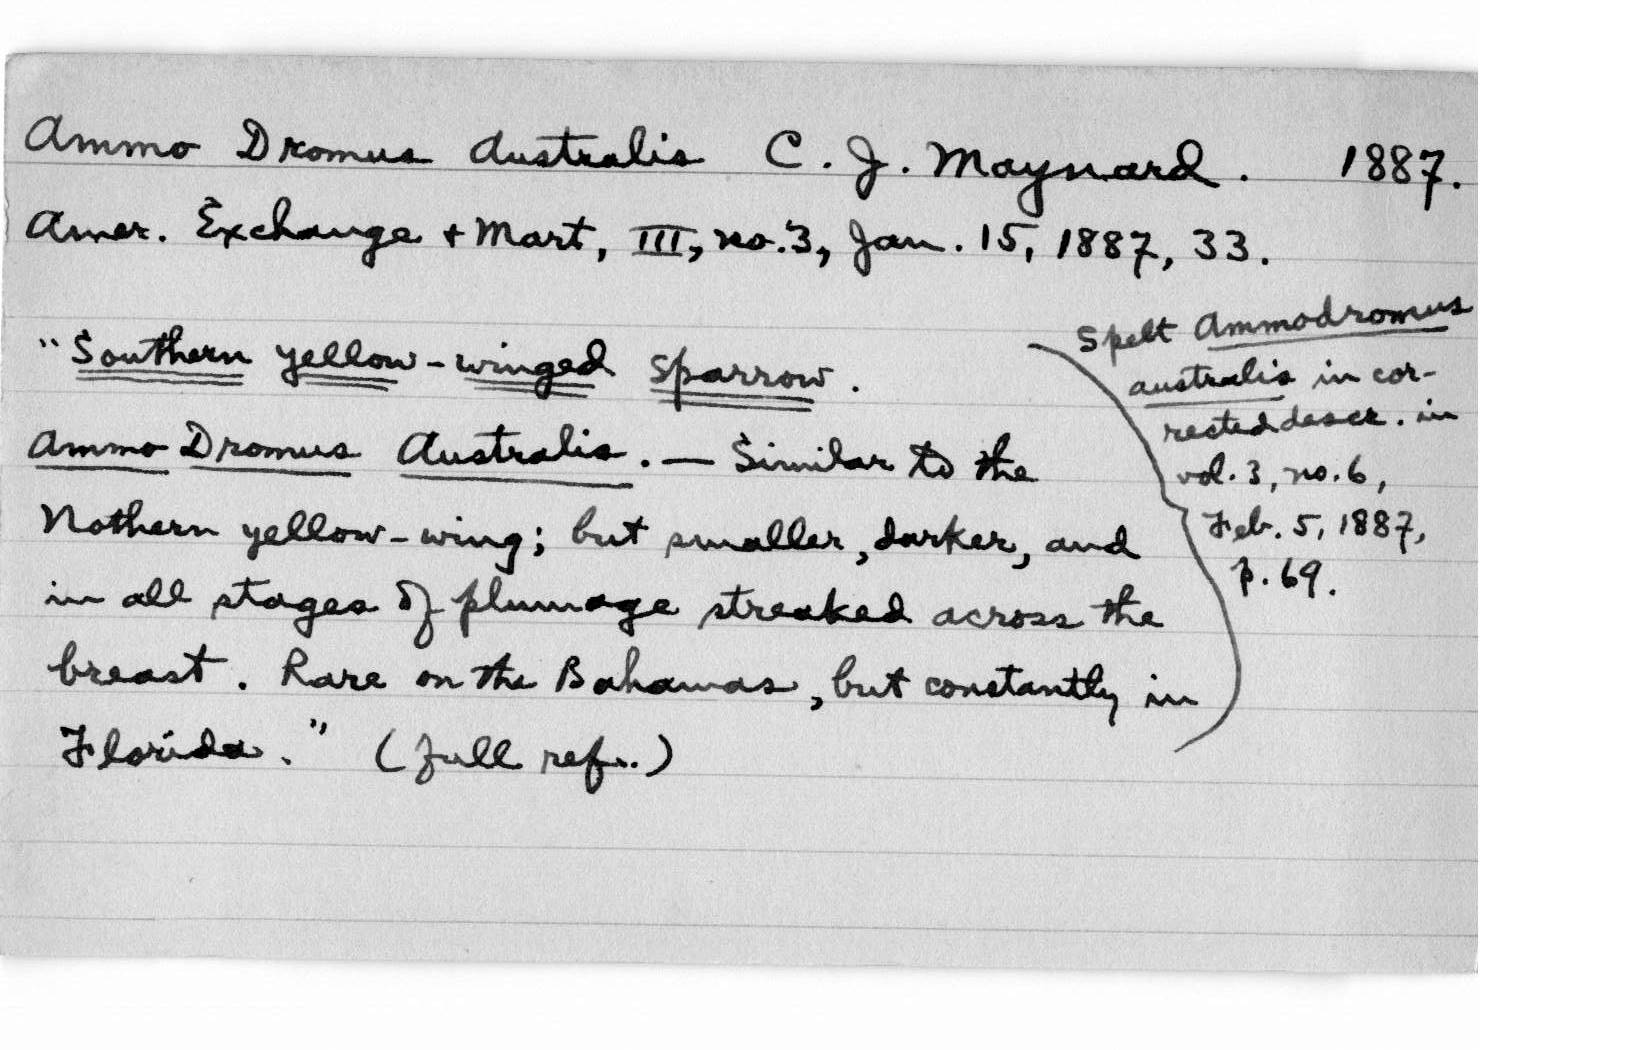 Ammo Dromus Australis C. J. Maynard. 1887.
Amer. Exchange + Mart, III, no. 3, Jan. 15, 1887, 33.
"Southern yellow-winged sparrow.
Ammo Dromus Australis. — Similar to the
Nothern yellow-wing; but smaller, darker, and
in all stages of plumage streaked across the
breast. Rare on the Bahamas, but constantly in
Florida." (full ref.)
Spelt Ammodromus
australis in cor-
rected descr. in
vol. 3, no. 6,
Feb. 5, 1887,
p. 69.